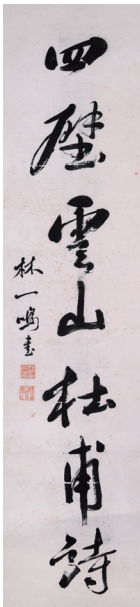 四壁雲山杜甫詩
林一鳴書